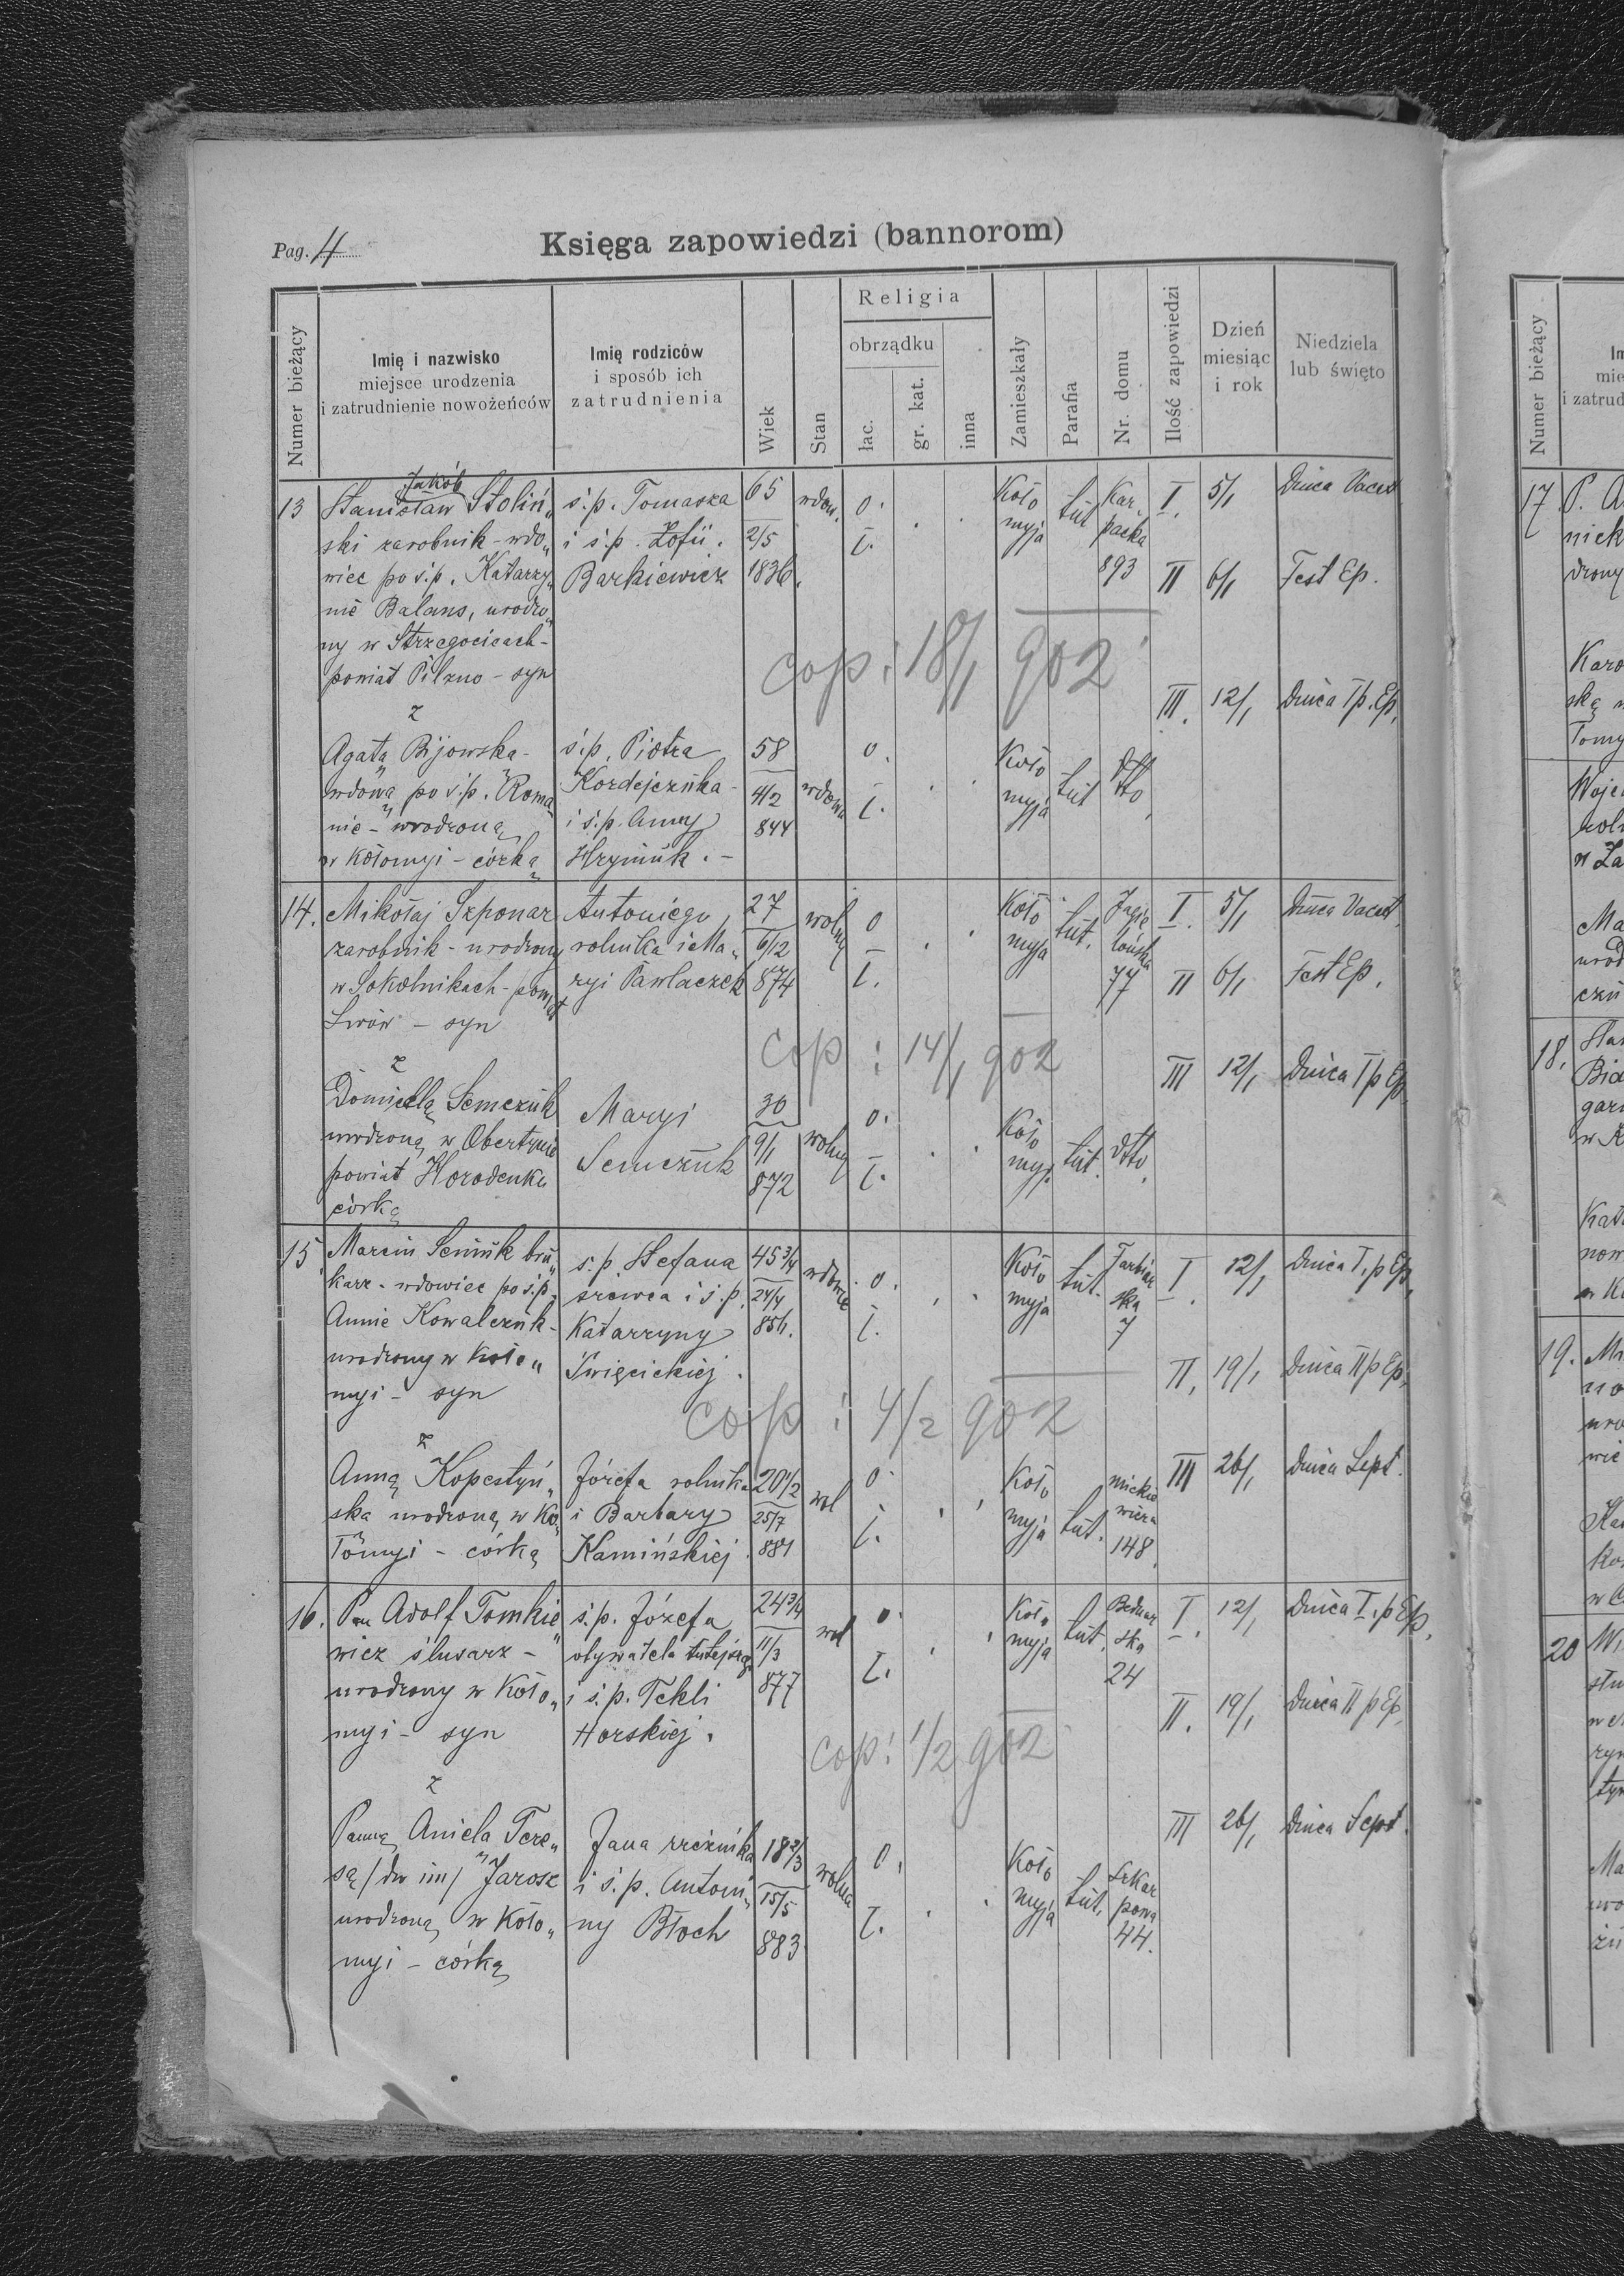 Pag. 4
Księga zapowiedzi (bannorom)
Numer bieżący
Imię i nazwisko
miejsce urodzenia
i zatrudnienie nowożeńców
Imię rodziców
i sposób ich
zatrudnienia
Wiek
Stan
Religia
obrządku
łac.
gr. kat.
inna
Zamieszkały
Parafia
Nr. domu
Ilość zapowiedzi
Dzień
miesiąc
i rok
Niedziela
lub święto
13
Jakób
Stanisław Stoliń„
ski zarobnik - wdo„
wiec po ś.p. Katarzy„
nie Balans, urodzo„
ny w Strzegocicach -
powiat Pilzno - syn
z
Agatą Bijowska -
wdową po ś.p. Roma„
nie - urodzoną
w Kołomyi - córką
ś.p. Tomasza
i ś.p. Zofii.
Barkiewicz
ś.p. Piotra
Kordejczuka -
i ś.p. Anny
Hryniuk. -
65
2/5
1836.
58
4/2
844
wdow.
wdowa
o.
ł.
o.
ł.
Koło
myja
tut
Kar„
packa
893
Koło
myja
tut
dtto
I.
5/1
Dnica Vacat
II
6/1
Fest Ep.
III.
12/1
Dnica I p. Ep.
cop: 18/1 902
14.
Mikołaj Szponar
zarobnik - urodzony
w Sokolnikach - powiat
Lwów - syn
z
Domicelą Semczuk
urodzoną w Obertynie
powiat Horodenka
córką
Antoniego
rolnika i Ma„
ryi Pawlaczek
Maryi
Semczuk
27
6/12
874
30
9/1
872
wolny
wolny
o
ł.
o.
ł.
Koło
myja
tut.
Jagie
lońska
77
Koło
myj.
tut.
dtto.
I.
5/1
Dnica Vacat
II
6/1
Fest Ep.
III
12/1
Dnica I p Ep
cop: 14/1 902
15
Marcin Seniuk bru„
karz - wdowiec po ś.p.
Annie Kowalczuk -
urodzony w Koło„
myi - syn
z
Anną Kopestyń„
ska urodzoną w Ko„
łomyi - córką
ś.p. Stefana
szewca i ś.p.
Katarzyny
Święcickiej.
Józefa rolnika
i Barbary
Kamińskiej.
45 3/4
24/4
856.
20 1/2
25/7
881
wdowiec
wol
o.
ł.
o.
ł.
Koło
myja
tut.
ska
7
Koło
myja
tut.
Mickie
wicza
148.
I.
12/1
Dnica I. p Ep.
II.
19/1
Dnica II p Ep.
III
26/1
Dnica Sept.
cop: 4/2 902
16.
Pan Adolf Tomkie„
wicz ślusarz -
urodzony w Koło„
myi - syn
z
Panną Aniela Tere„
są /dw im/ Jarosz
urodzoną w Koło„
myi - córką
ś.p. Józefa
obywatela tutejszego
i ś.p. Tekli
Horskiej.
Jana rzeźnika
i ś.p. Antoni„
ny Błoch
24 3/4
11/3
877
18 2/3
15/5
883
wol
wolna
o.
ł.
o.
ł.
Koło
myja
tut.
Bednar
ska
24
Koło
myja
tut.
Szkar
powa
44.
I.
12/1
Dnica I. p Ep.
II.
19/1
Dnica II p Ep.
III
26/1
Dnica Sept.
cop: 1/2 902
Numer bieżący
17
18.
19.
20